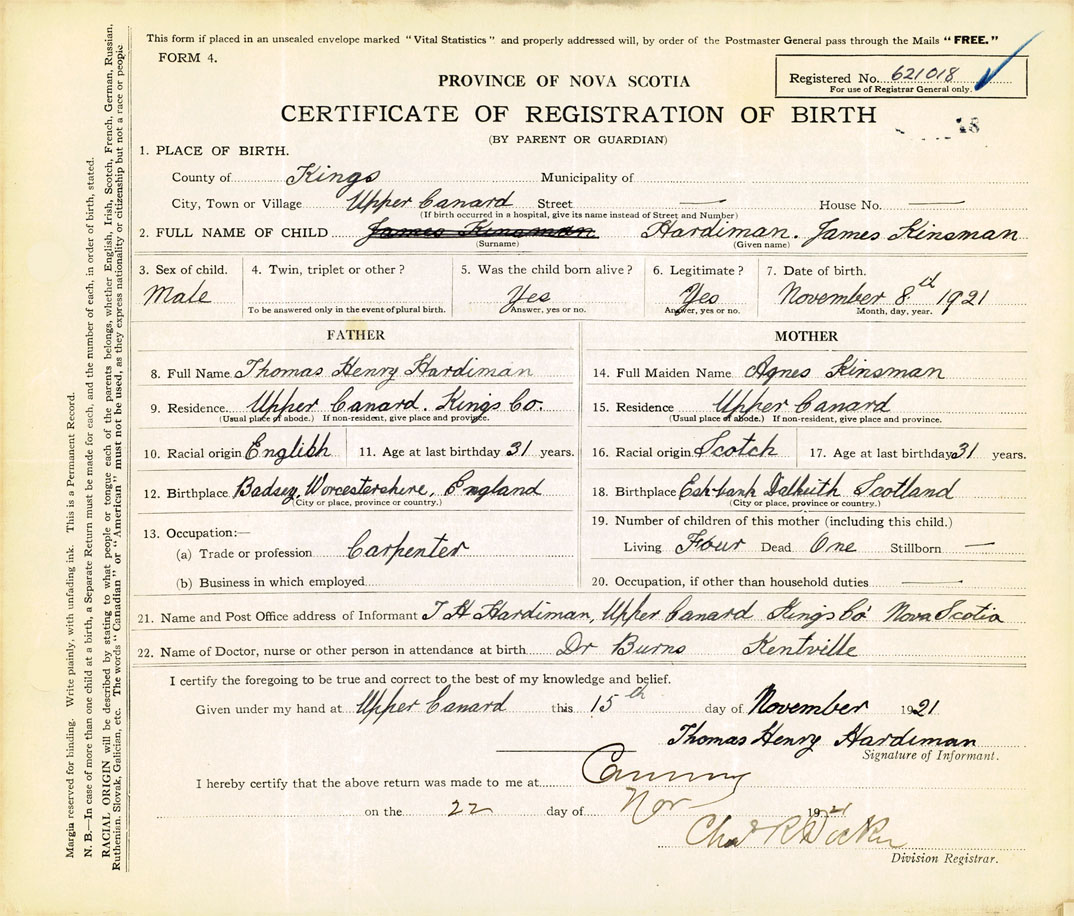 This form if placed in an unsealed envelope marked "Vital Statistics" and properly addressed will, by order of the Postmaster General pass through the Mails "FREE."
FORM 4.
Registered No. 621018
For use of Registrar General only.
PROVINCE OF NOVA SCOTIA
CERTIFICATE OF REGISTRATION OF BIRTH
(BY PARENT OR GUARDIAN)
1. PLACE OF BIRTH.
County of Kings Municipality of
City, Town or Village Upper Canard Street — House No. —
(If birth occurred in a hospital, give its name instead of Street and Number)
2. FULL NAME OF CHILD James Kinsman Hardiman. James Kinsman
(Surname) (Given name)
3. Sex of child. 4. Twin, triplet or other? 5. Was the child born alive? 6. Legitimate? 7. Date of birth.
Male Yes Yes November 8th 1921
To be answered only in the event of plural birth. Answer, yes or no. Answer, yes or no. Month, day, year.
FATHER MOTHER
8. Full Name Thomas Henry Hardiman 14. Full Maiden Name Agnes Kinsman
9. Residence Upper Canard. Kings Co. 15. Residence Upper Canard
(Usual place of abode.) If non-resident, give place and province. (Usual place of abode.) If non-resident, give place and province.
10. Racial origin English 11. Age at last birthday 31 years. 16. Racial origin Scotch 17. Age at last birthday 31 years.
12. Birthplace Badsey, Worcestershire, England 18. Birthplace Eskbank Dalkeith Scotland
(City or place, province or country.) (City or place, province or country.)
13. Occupation:— 19. Number of children of this mother (including this child.)
(a) Trade or profession Carpenter Living Four Dead One Stillborn —
(b) Business in which employed 20. Occupation, if other than household duties —
21. Name and Post Office address of Informant T H Hardiman, Upper Canard Kings Co Nova Scotia
22. Name of Doctor, nurse or other person in attendance at birth Dr Burns Kentville
I certify the foregoing to be true and correct to the best of my knowledge and belief.
Given under my hand at Upper Canard this 15th day of November 1921
Thomas Henry Hardiman
Signature of Informant.
I hereby certify that the above return was made to me at Canning
on the 22 day of Nov 1921
Division Registrar.
Margin reserved for binding. Write plainly, with unfading ink. This is a Permanent Record.
N. B.—In case of more than one child at a birth, a Separate Return must be made for each, and the number of each, in order of birth, stated.
RACIAL ORIGIN will be described by stating to what people or tongue each of the parents belongs, whether English, Irish, Scotch, French, German, Russian,
Ruthenian. Slovak, Galician, etc. The words "Canadian" or "American" must not be used, as they express nationality or citizenship but not a race or people